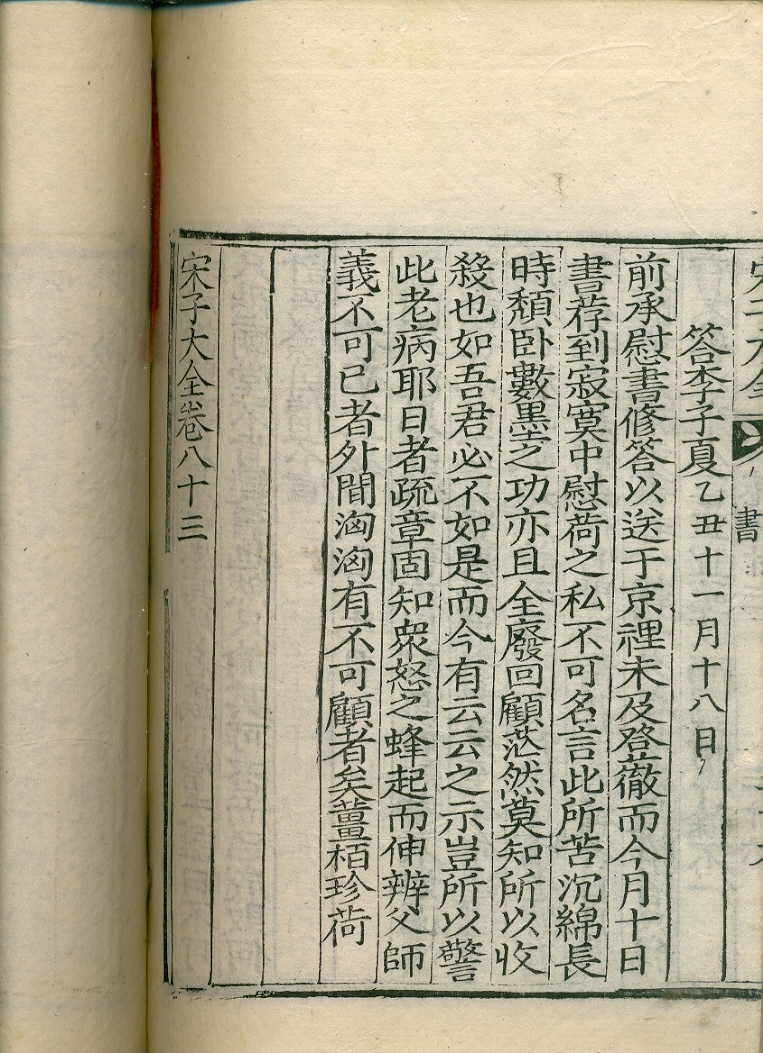 書
答李子夏乙丑十一月十八日
前承慰書修答以送于京裡未及啓徹而今月十日
書荐到寂寞中慰荷之私不可名言此所苦沉綿長
時頹卧數墨之功亦且全廢回顧茫然莫知所以收
殺也如吾君必不如是而今有云云之示豈所以警
此老病耶日者疏章固知衆怒之蜂起而伸辨父師
義不可已者外間洶洶有不可顧者矣薑栢珍荷
宋子大全卷八十三